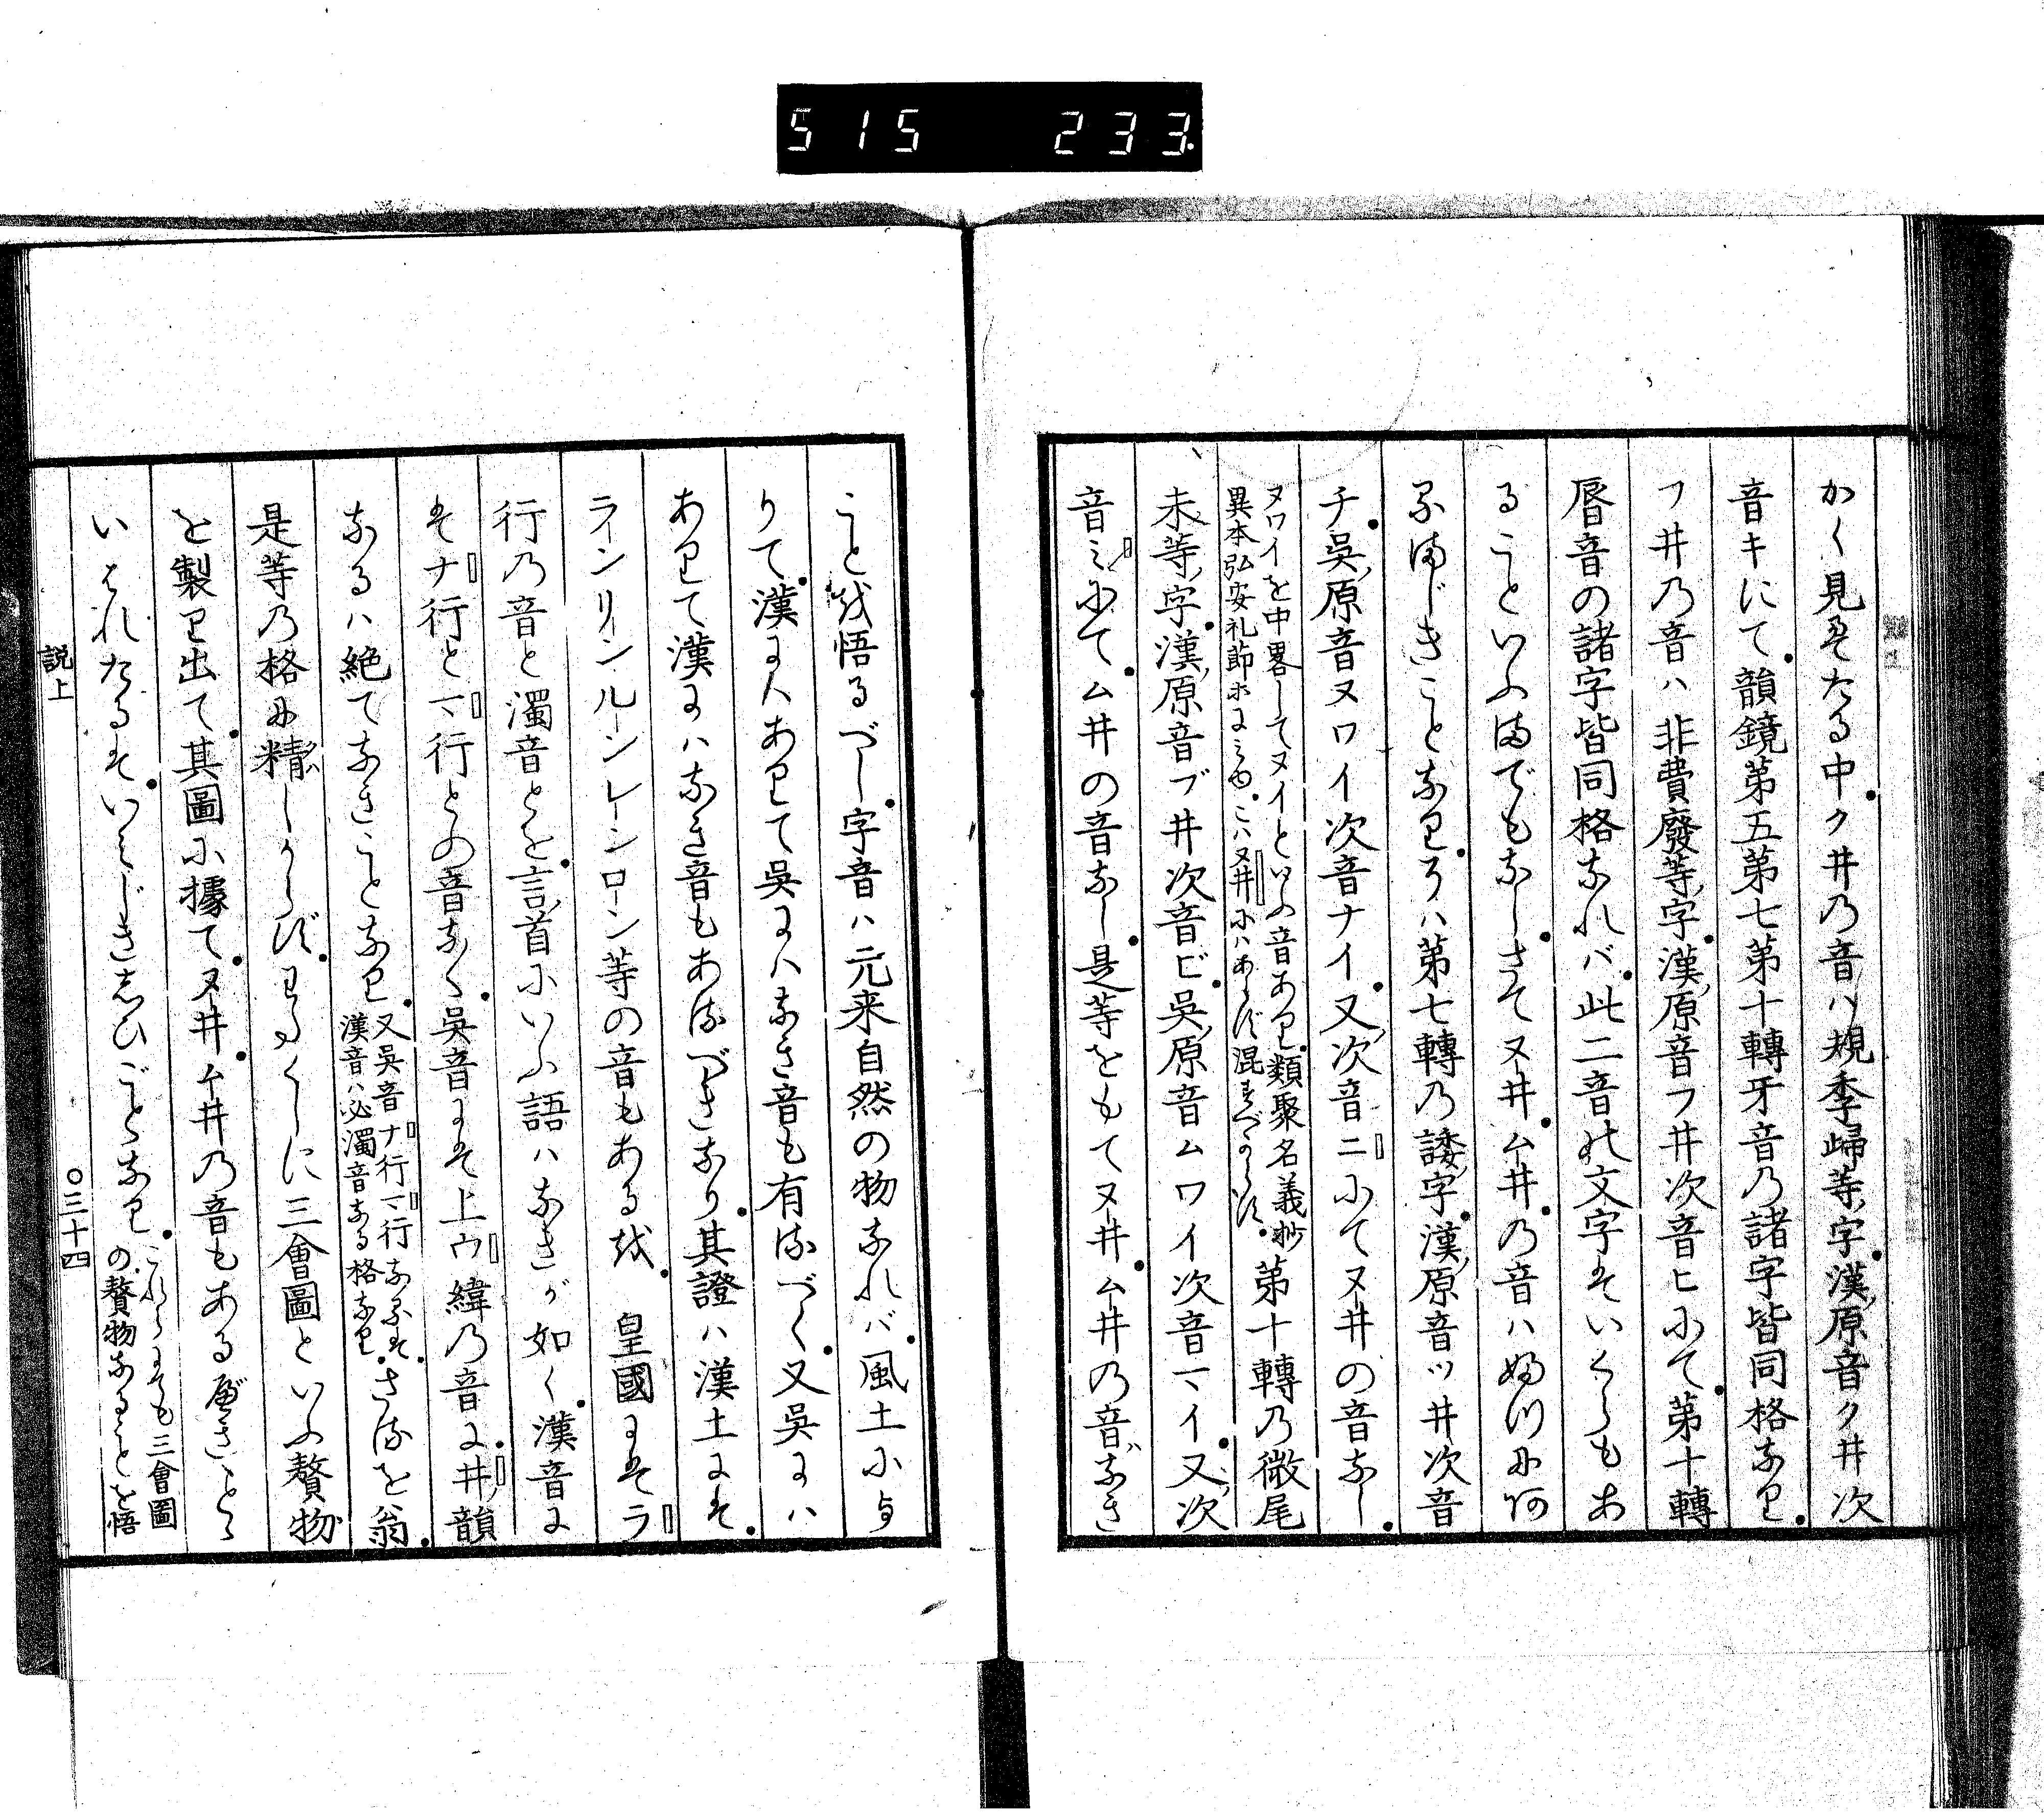 515 233
かく見えたる中クヰ乃音ハ規季歸等字漢原音クヰ次
音キにて韻鏡第五第七第十轉牙音乃諸字皆同格なり
フヰ乃音ハ非費廢等字漢原音フヰ次音ヒにて第十轉
唇音の諸字皆同格なれバ此二音の文字はいくらもあ
ることいふまでもなしさてヌヰムヰ乃音ハ
るまじきことなり第七轉乃諉字漢原音ツヰ次音
チ呉原音ヌワイ次音ナイ又次音ニにてヌヰの音なし
ヌワイを中畧してヌイといふ音あり類聚名義抄
異本弘安礼節ホにミゆこハヌヰにハあらず混ずべからず
第十轉乃微尾
未等字漢原音ブヰ次音ビ呉原音ムワイ次音マイ又次
音ミにてムヰの音なし是等をもてヌヰムヰ乃音なき
こと越悟るべし字音ハ元来自然の物なれバ風土によ
りて漢にハありて呉にハなき音も有べく又呉にハ
ありて漢にハなき音もあるべきなり其證ハ漢土にて
ラーンリーンルーンレーンローン等の音もある越皇國にてラ
行乃音と濁音とを言首にいふ語ハなきが如く漢音に
てナ行とマ行との音なく呉音にて上ウ緯乃音にヰ韻
なるハ絶てなきことなり
又呉音ナ行マ行なるは
漢音ハ必濁音なる格なり
さるを翁
是等乃格に精しからずわたくしに三會圖といふ贅物
を製り出て其圖に據てヌヰムヰ乃音もあるべきことゝ
いはれたるはいみじきしひごとなり
これらにても三會圖
の贅物なることを悟
説上
〇三十四